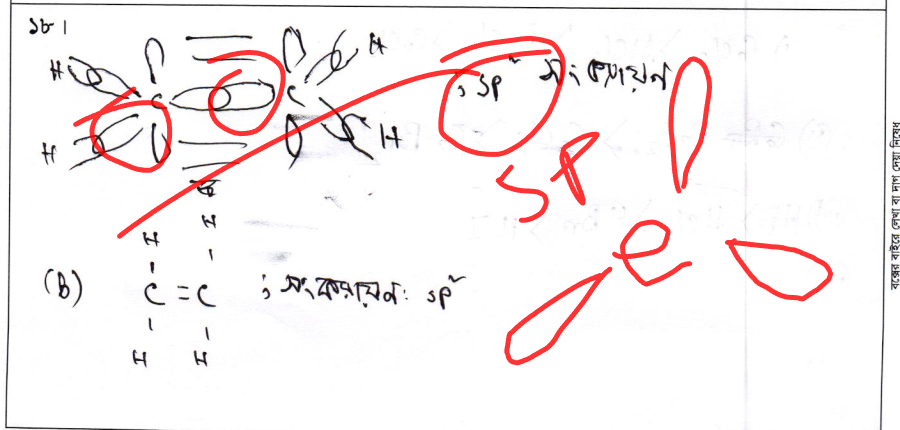 ১৮।
H H
C C ; sp² সংকরায়ন
H H
sp
e
H H
(B) C = C ; সংকরায়ন: sp²
H H
বক্সের বাইরে লেখা বা দাগ দেয়া নিষেধ